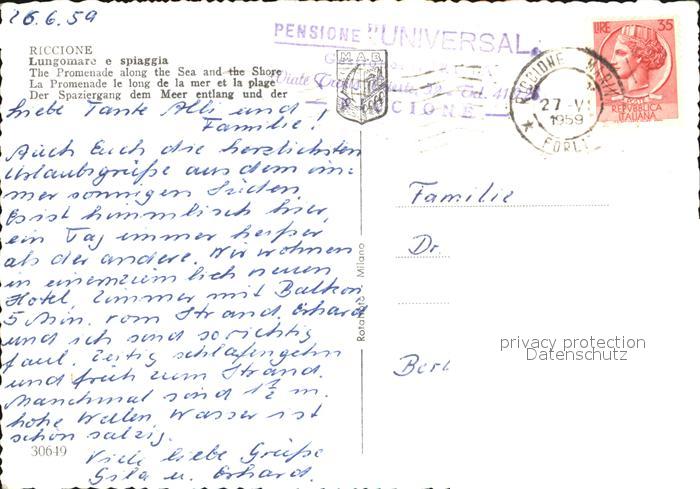 26.6.59
RICCIONE
Lungomare e spiaggia
The Promenade along the Sea and the Shore
La Promenade le long de la mer et la plage
Der Spaziergang dem Meer entlang und der
Liebe Tante Alli und
Familie!
Auch Euch die herzlichsten
Urlaubsgrüße aus dem im-
mer sonnigen Süden.
Es ist himmlisch hier,
ein Tag immer heißer
als der andere. Wir wohnen
in einem ziemlich neuen
Hotel, Zimmer mit Balkon
5 Min. vom Strand. Erhard
und ich sind so richtig
faul. Zeitig schlafengehn
und früh zum Strand.
Manchmal sind 1½ m.
hohe Wellen. Wasser ist
schön salzig.
Viele liebe Grüße
Gila u. Erhard.
30649
Rotalfoto - Milano
M.A.B.
PENSIONE "UNIVERSAL"
Viale
Tel.
RICCIONE
RICCIONE
27-VI
1959
FORLI
LIRE 35
REPVBBLICA
ITALIANA
Familie
Dr.
Berl
privacy protection
Datenschutz